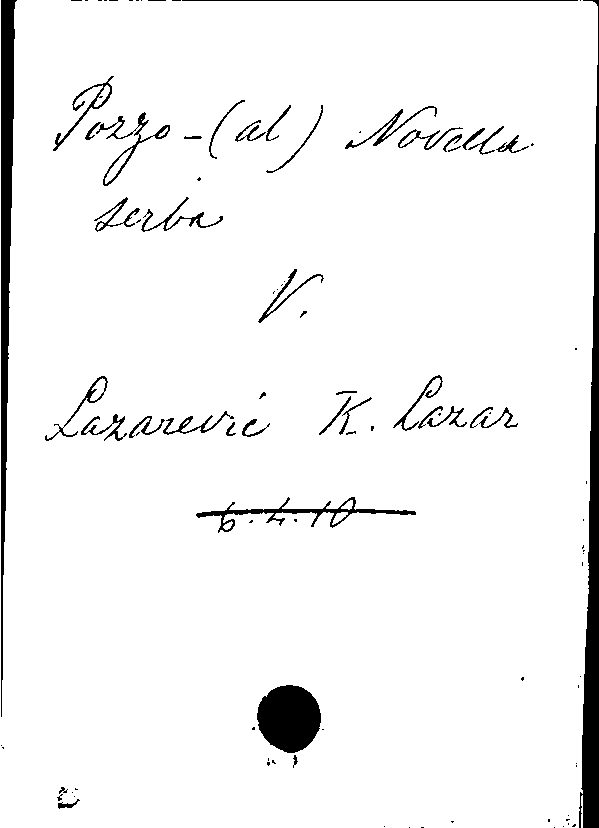 Pozzo-(al) Novella
serba
V.
Lazarević K. Lazar
6.4.10